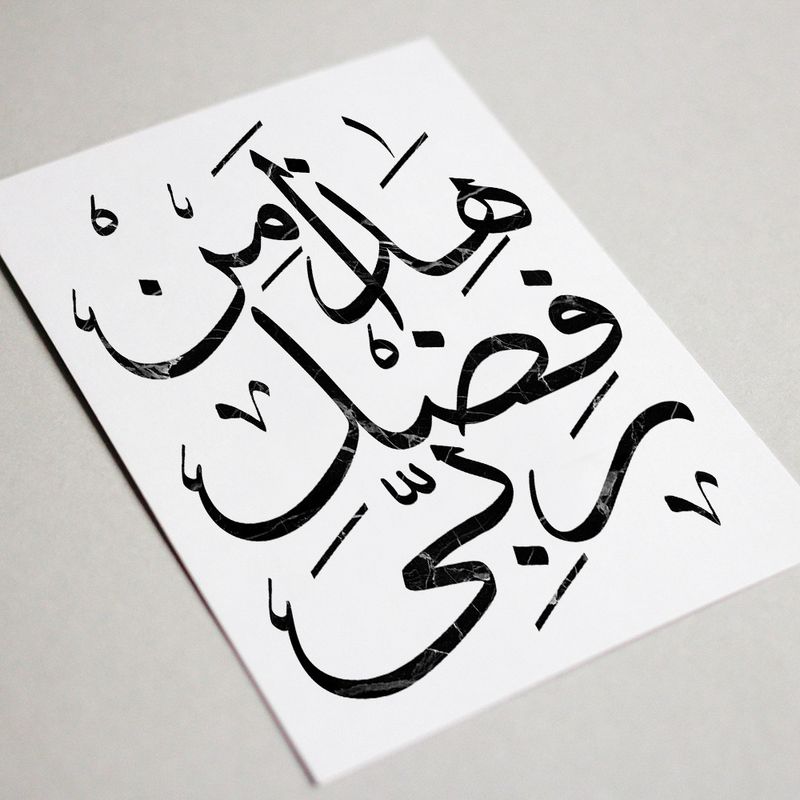 هَذَا مِنْ
فَضْلِ
رَبِّي